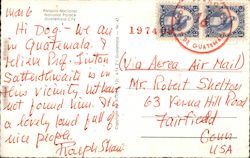 Mar 6
Palacio Nacional
National Palace
Guatemala City
1974
GUATEMALA
Hi Dog - We are
in Guatemala. I
believe Prof. Linton
Satterthwaite is in
this vicinity but have
not found him. It's
a lovely land full of
nice people.
Ralph Shaw
(Via Aerea Air Mail)
Mr. Robert Shelton
63 Verna Hill Road
Fairfield
Conn
USA